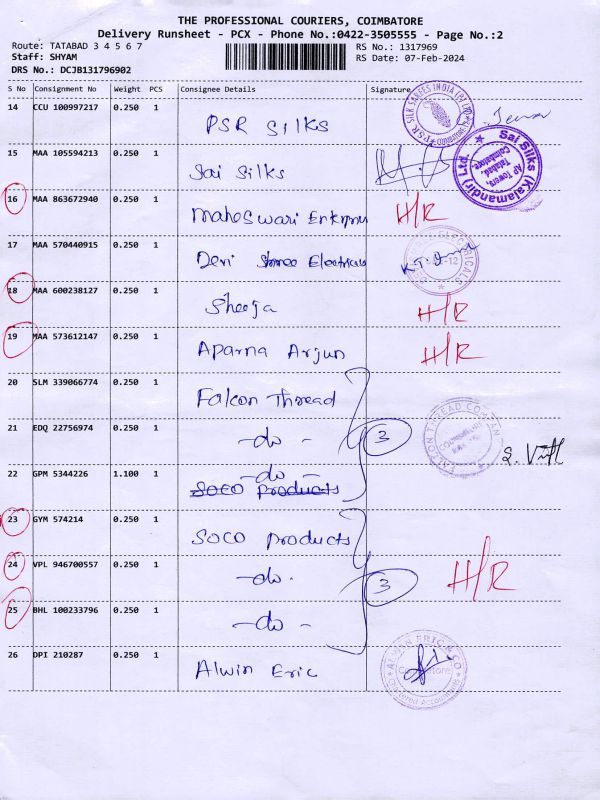 THE PROFESSIONAL COURIERS, COIMBATORE
Delivery Runsheet - PCX - Phone No.:0422-3505555 - Page No.:2
Route: TATABAD 3 4 5 6 7 RS No.: 1317969
Staff: SHYAM RS Date: 07-Feb-2024
DRS No.: DCJB131796902
S No Consignment No Weight PCS Consignee Details Signature
14 CCU 100997217 0.250 1 PSR SILKS
PSR SILK SAREES INDIA (P) LTD
15 MAA 105594213 0.250 1 Sai Silks
Sai Silks (Kalamandir) Ltd.
AP Towers,
Tatabad,
Coimbatore.
16 MAA 863672940 0.250 1 Maheswari H/R
17 MAA 570440915 0.250 1 Devi Shree Electricals
ELECTRICALS
18 MAA 600238127 0.250 1 Sheeja H/R
19 MAA 573612147 0.250 1 Aparna Arjun H/R
20 SLM 339066774 0.250 1 Falcon Thread
21 EDQ 22756974 0.250 1 -do - 3
FALCON THREAD COMPANY
22 GPM 5344226 1.100 1 -do -
SOCO Products
23 GYM 574214 0.250 1 SOCO Products
24 VPL 946700557 0.250 1 -do. 3 H/R
25 BHL 100233796 0.250 1 -do -
26 DPI 210287 0.250 1 Alwin Eric
ALWIN ERIC & CO
Chartered Accountants